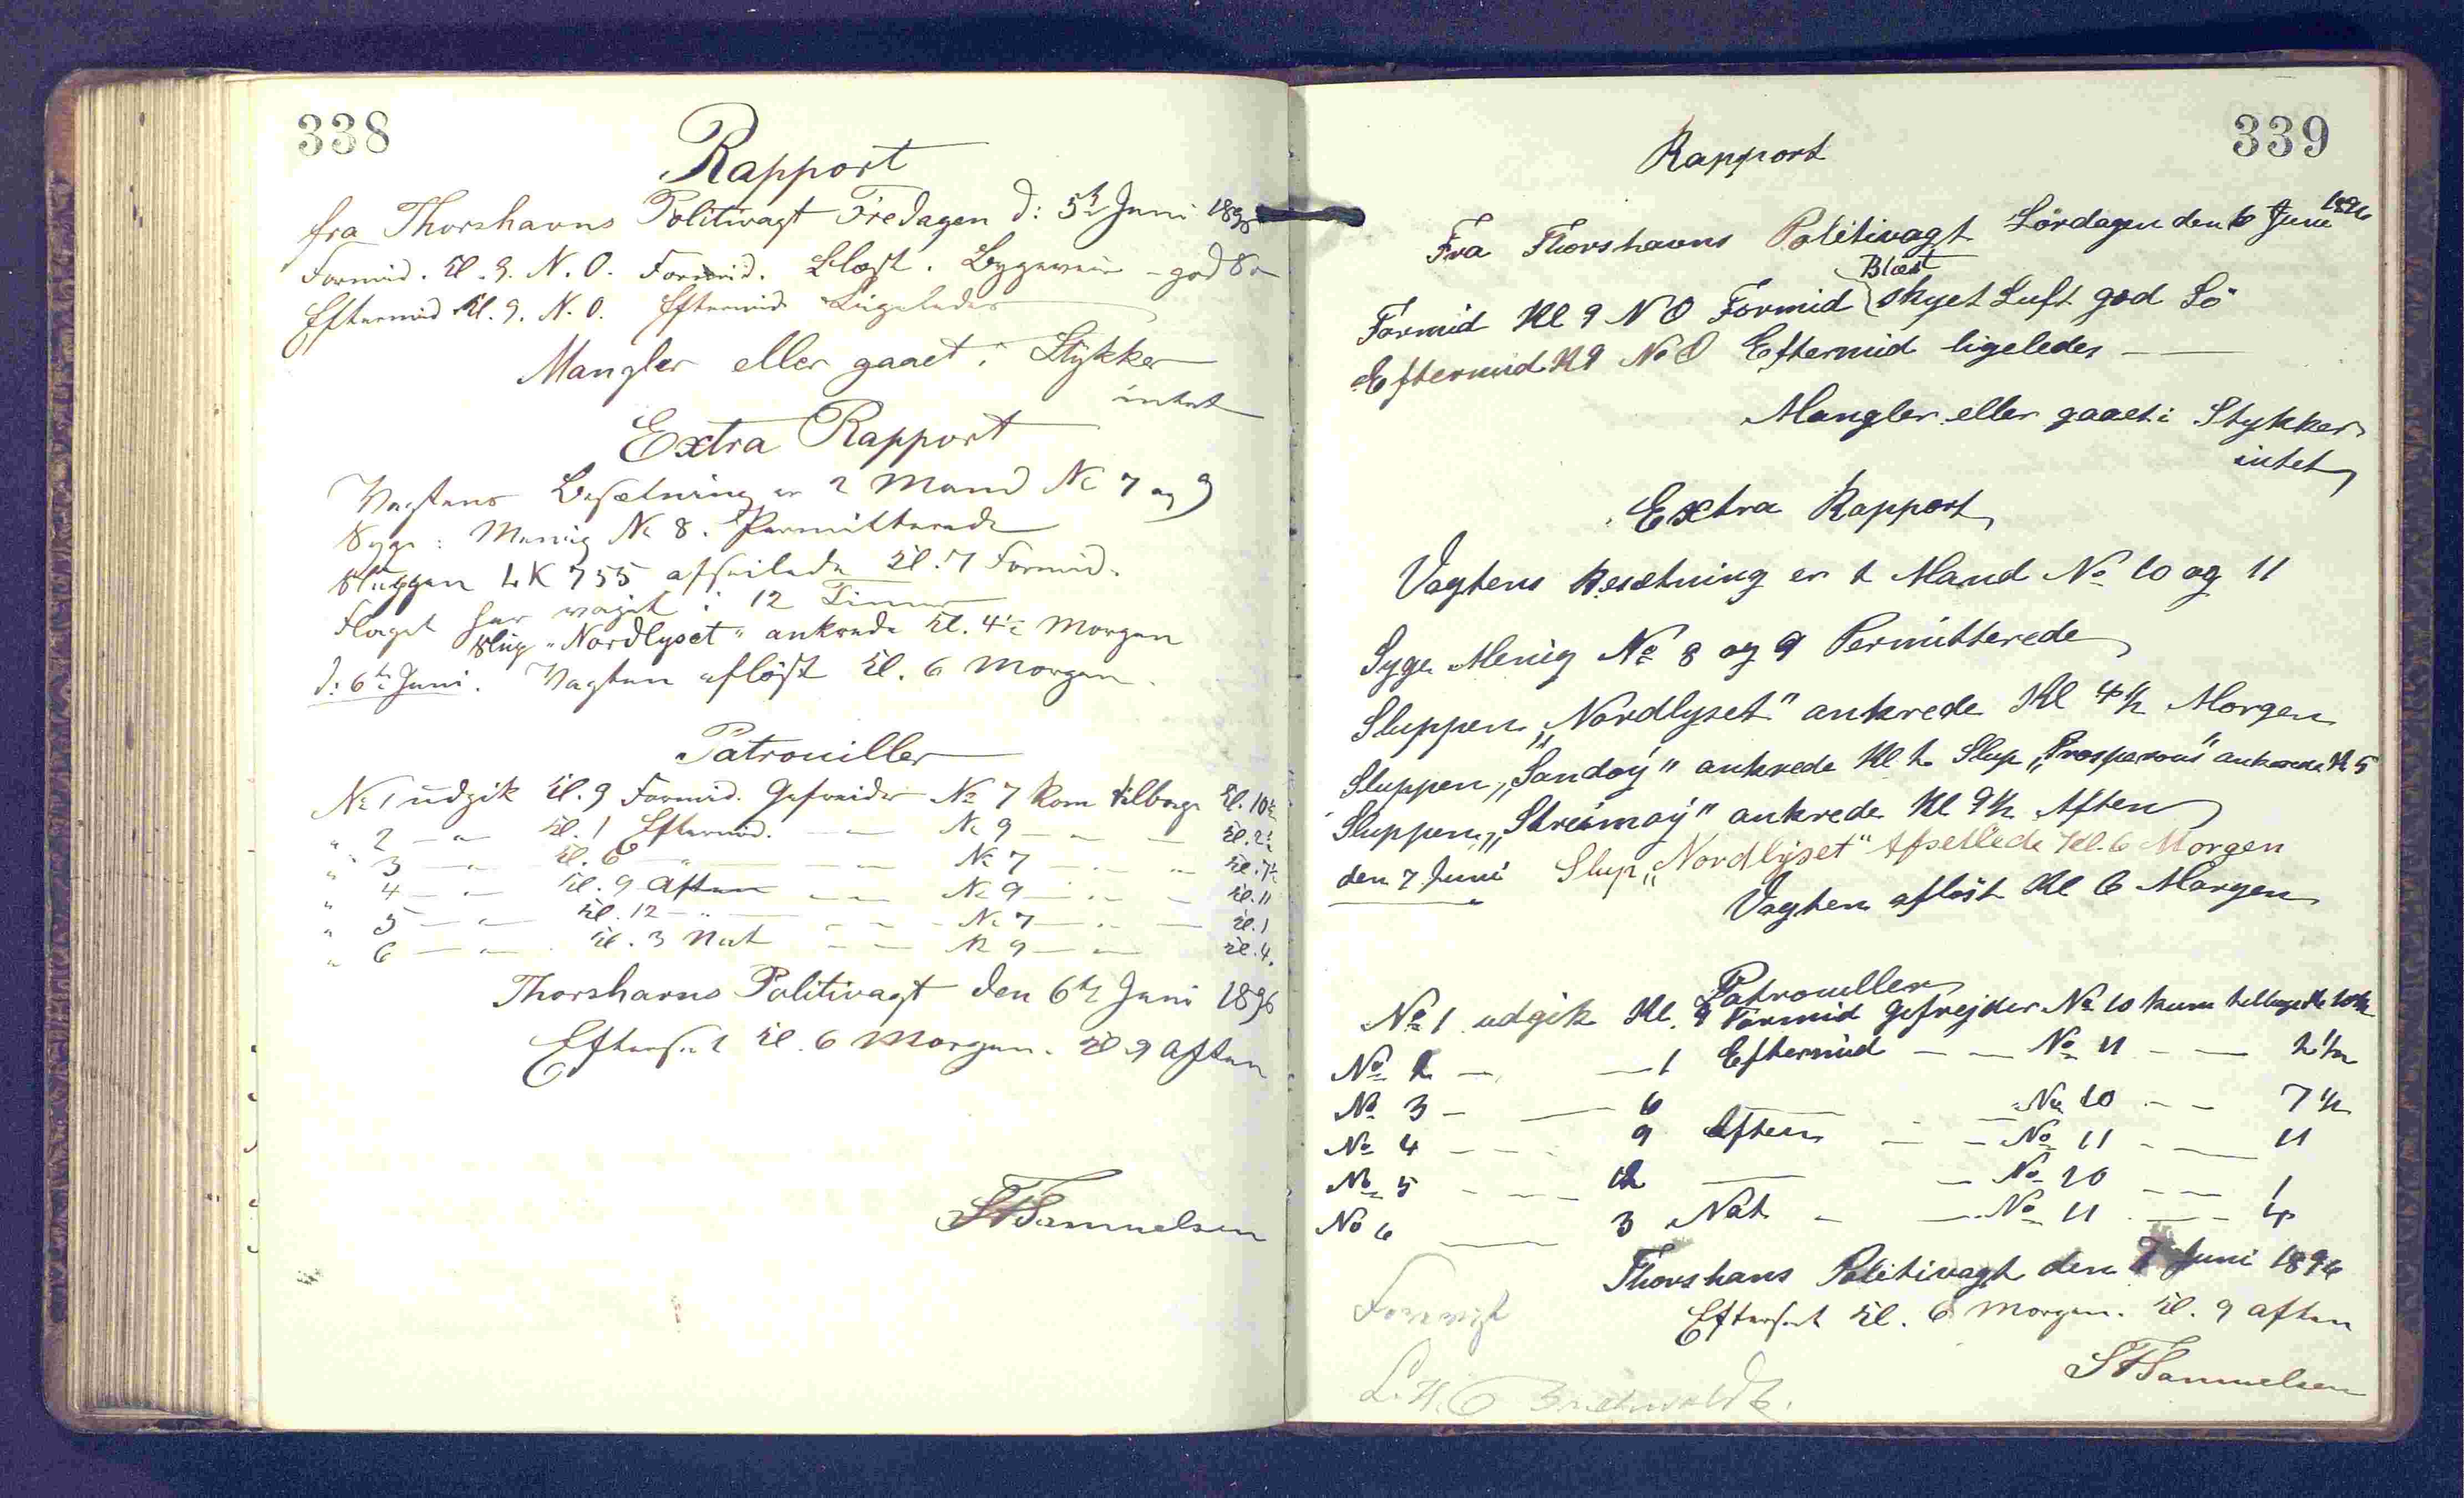 338
Rapport
fra Thorshavns Politivagt Fredagen d: 5te Juni 1896
Formid. Kl. 9. N.O. Formid. Blæst. Bygeveir - god Sø
Eftermid Kl. 9. N.O. Eftermid Ligeledes
Mangler eller gaaet i Stykker
intet
Extra Rapport
Vagtens Besætning er 2 Mand No 7 og 9
Syge: Menig No 8. Permitterede
Sluppen LK 755 afseilede Kl. 7 Formid.
Flaget har vajet i 12 Timer
Slup "Nordlyset" ankrede Kl. 4½ Morgen
d: 6te Juni. Vagten afløst Kl. 6 Morgen.
Patrouiller
No 1 udgik Kl. 9 Formid. Gefreider No 7 kom tilbage Kl. 10½
" 2 — " Kl. 1 Eftermid. — " — No 9 — " — Kl. 2½
" 3 — " Kl. 6 — " — No 7 — " — Kl. 7½
" 4 — " Kl. 9 Aften — " — No 9 — " — Kl. 11
" 5 — " Kl. 12 — " — No 7 — " — Kl. 1
" 6 — " Kl. 3 Nat — " — No 9 — " — Kl. 4.
Thorshavns Politivagt den 6te Juni 1896
Efterset Kl. 6 Morgen. Kl 9 Aften
Samuelsen
339
Rapport
Fra Thorshavns Politivagt Lördagen den 6 Juni 1896
Blæst
Formid Kl 9 N O Formid skyet Luft god Sö
Eftermid Kl 9 N O Eftermid ligeledes —
Mangler eller gaaet i Stykker
intet
Extra Rapport
Vagtens Besætning er 2 Mand No 10 og 11
Syge Menig No 8 og 9 Permitterede
Sluppen „Nordlyset" ankrede Kl 4½ Morgen
Sluppen „Sandoy" ankrede Kl 2 Slup „Prosperous" ankrede Kl 5
Sluppen „Streimoy" ankrede Kl 9½ Aften
den 7 Juni Slup „Nordlyset" Afseilede Kl. 6 Morgen
Vagten aflöst Kl 6 Morgen
Patrouiller
No 1 udgik Kl. 9 Formid Gefrejder No 10 kom tilbage Kl 10½
No 2 — — 1 Eftermid — — No 11 — — 2½
No 3 — — 6 — No 10 — — 7½
No 4 — — 9 Aften — — No 11 — — 11
No 5 — — 12 — — No 10 — — 1
No 6 — 3 Nat — — No 11 — — 4
Thorshavns Politivagt den 7 Juni 1896
Efterset Kl. 6 Morgen. Kl. 9 Aften
Samuelsen